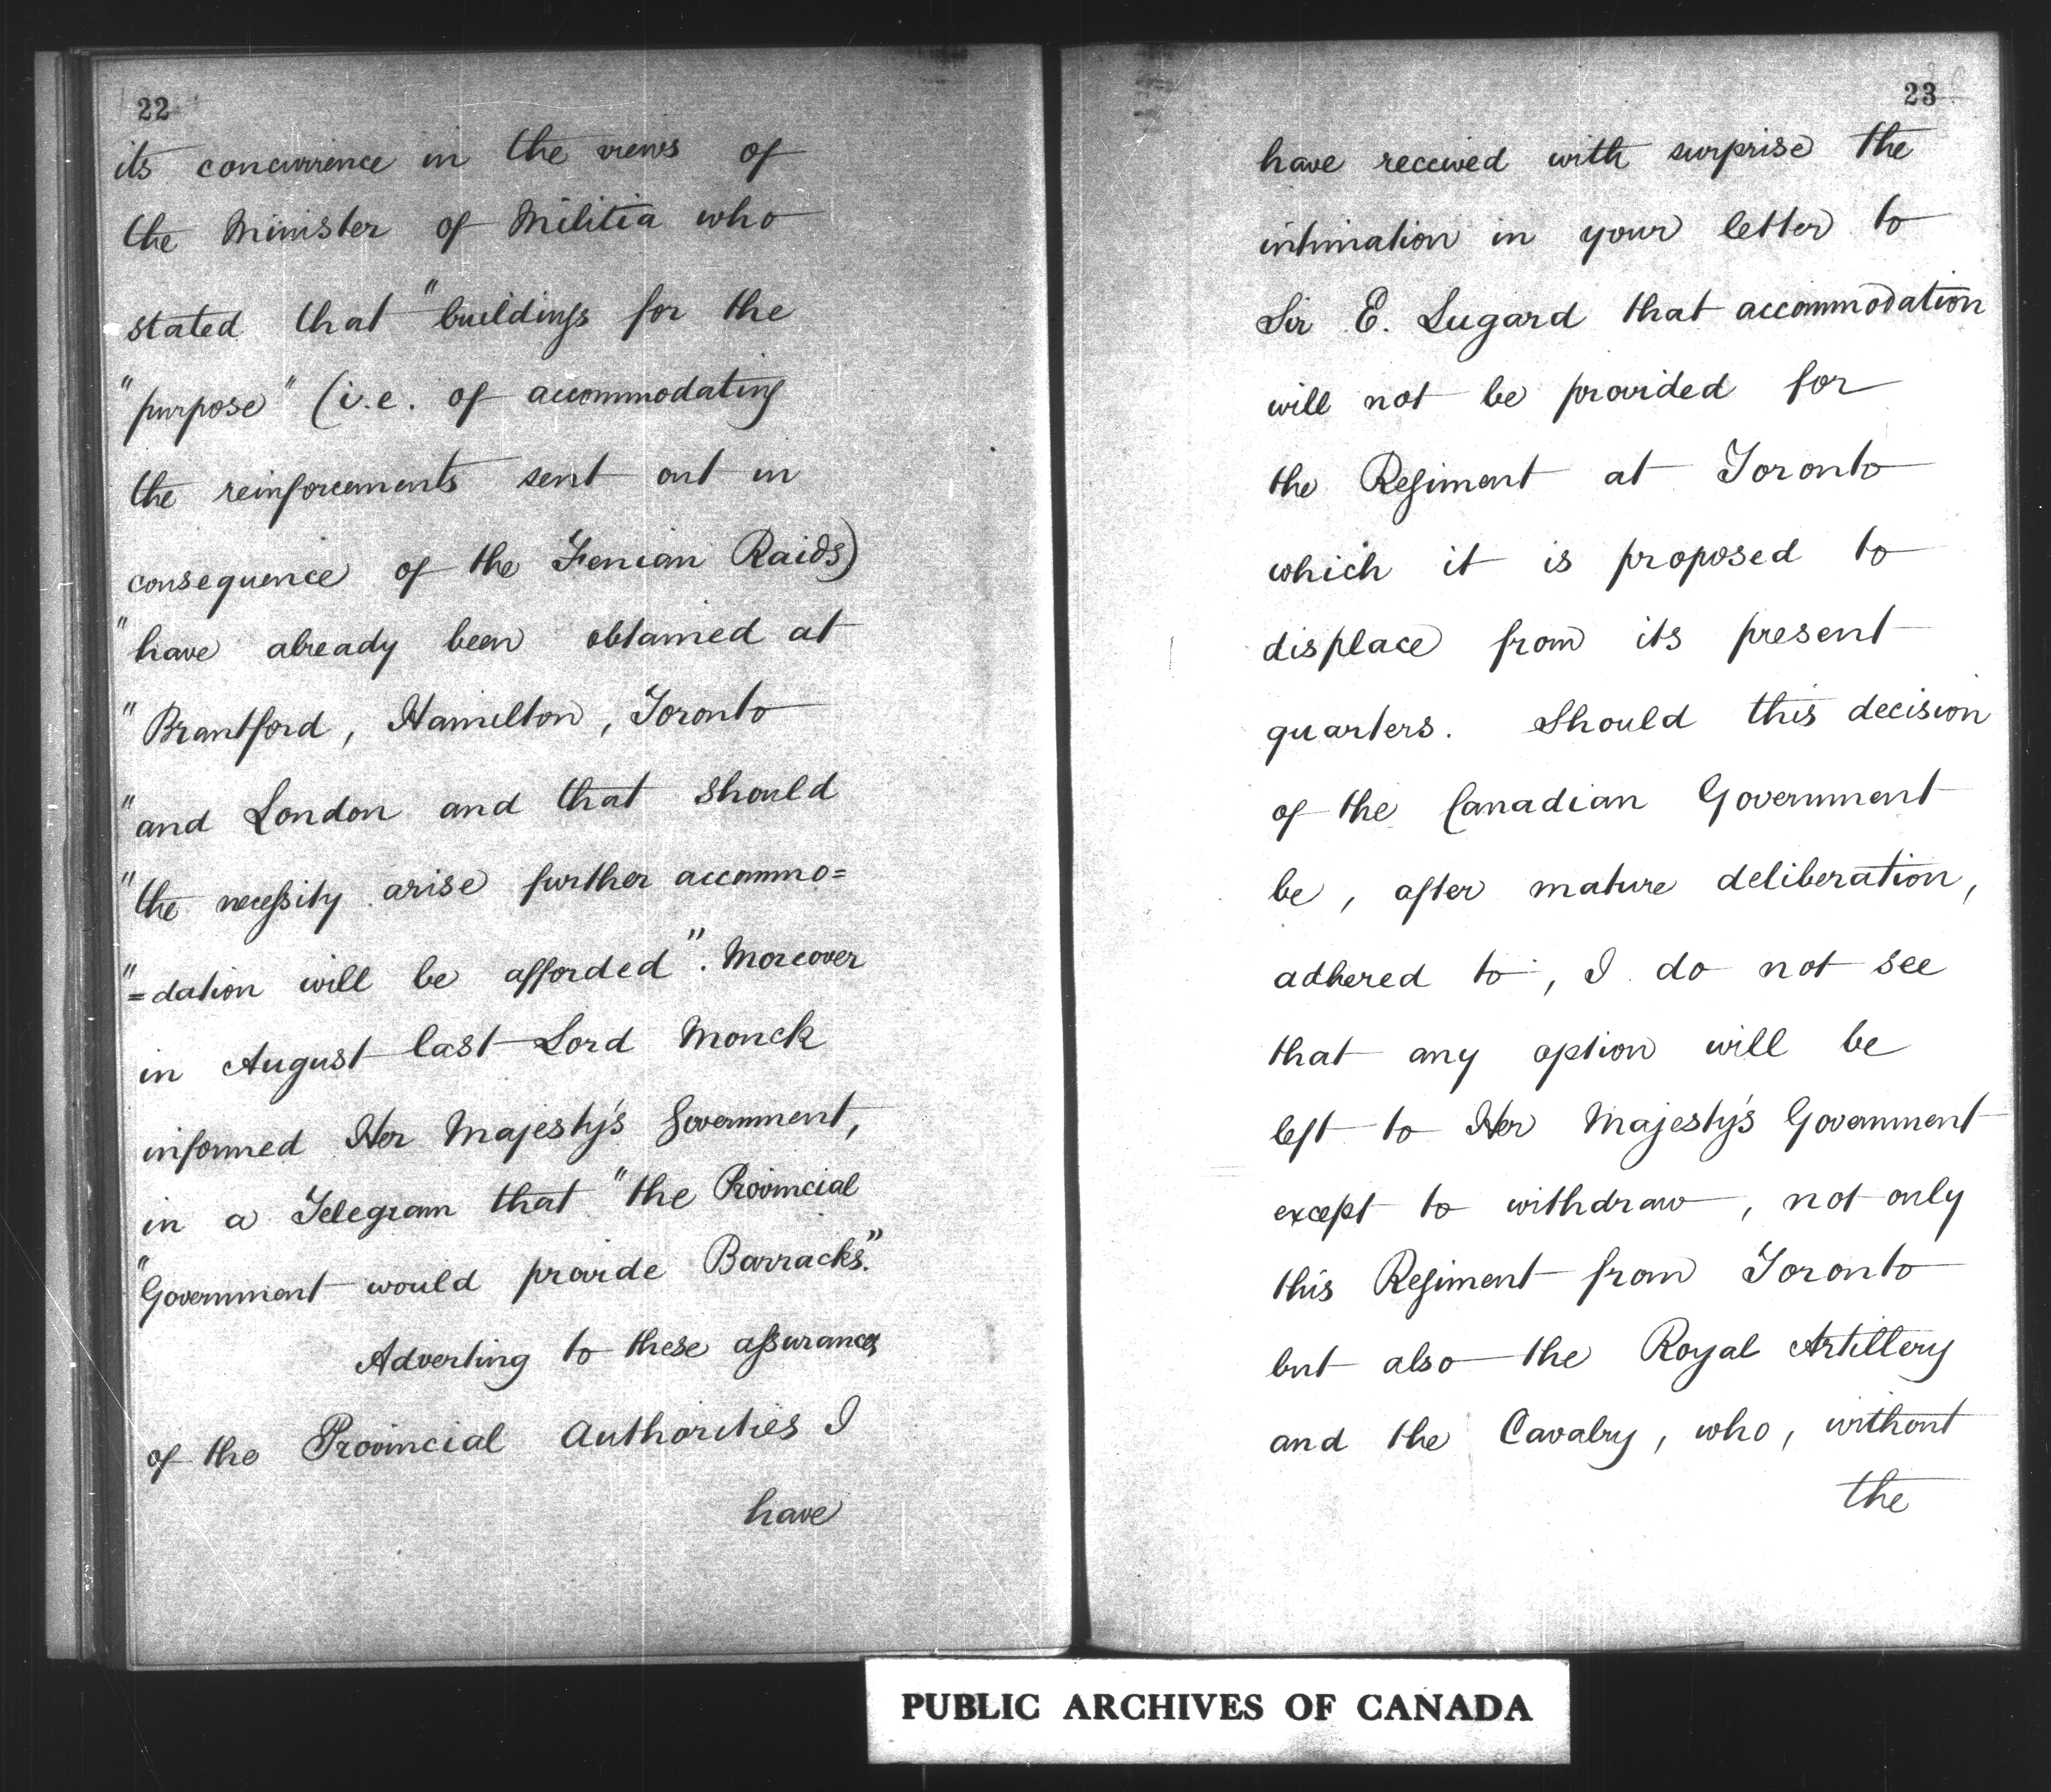 22
its concurrence in the views of
the Minister of Militia who
stated that "buildings for the
"purpose" (i.e. of accommodating
the reinforcements sent out in
consequence of the Fenian Raids)
"have already been obtained at
"Brantford, Hamilton, Toronto
"and London and that should
"the necessity arise further accommo=
"=dation will be afforded". Moreover
in August last Lord Monck
informed Her Majesty's Government,
in a Telegram that "the Provincial
"Government would provide Barracks."
Adverting to these assurances
of the Provincial Authorities I
have
23
have received with surprise the
intimation in your letter to
Sir E. Lugard that accommodation
will not be provided for
the Regiment at Toronto
which it is proposed to
displace from its present
quarters. Should this decision
of the Canadian Government
be, after mature deliberation,
adhered to, I do not see
that any option will be
left to Her Majesty's Government
except to withdraw, not only
this Regiment from Toronto
but also the Royal Artillery
and the Cavalry, who, without
the
PUBLIC ARCHIVES OF CANADA